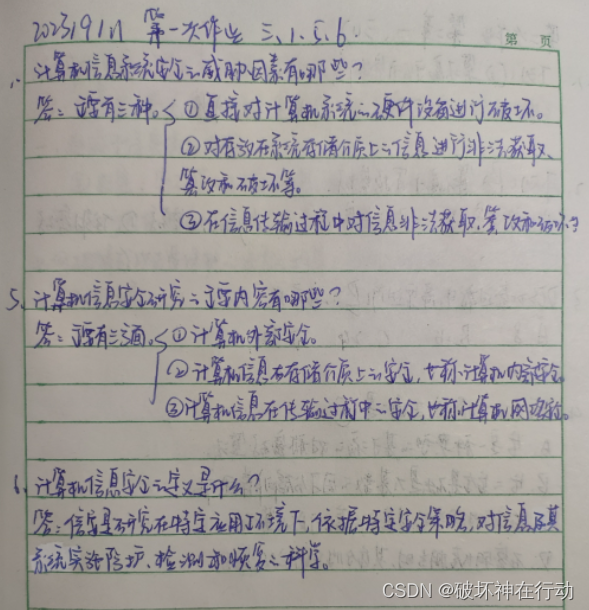 2023.9.11 第一次作业 三、1.5.6
第 页
1、计算机信息系统安全的威胁因素有哪些?
答:主要有三种。①直接对计算机系统的硬件设备进行破坏。
②对存放在系统存储介质上的信息进行非法获取、
篡改和破坏等。
③在信息传输过程中对信息非法获取、篡改和破坏等
5、计算机信息安全研究的主要内容有哪些?
答:主要有三方面。①计算机外部安全。
②计算机信息在存储介质上的安全,也称计算机内部安全。
③计算机信息在传输过程中的安全,也称计算机网络安全。
6、计算机信息安全的定义是什么?
答:信安是研究在特定应用环境下,依据特定安全策略,对信息及其
系统实施防护、检测和恢复的科学。
CSDN @破坏神在行动